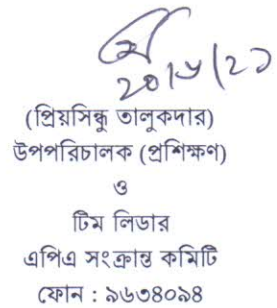 ২০/৬/২১
(প্রিয়সিন্ধু তালুকদার)
উপপরিচালক (প্রশিক্ষণ)
ও
টিম লিডার
এপিএ সংক্রান্ত কমিটি
ফোন : ৯৬৩৪০৯৪